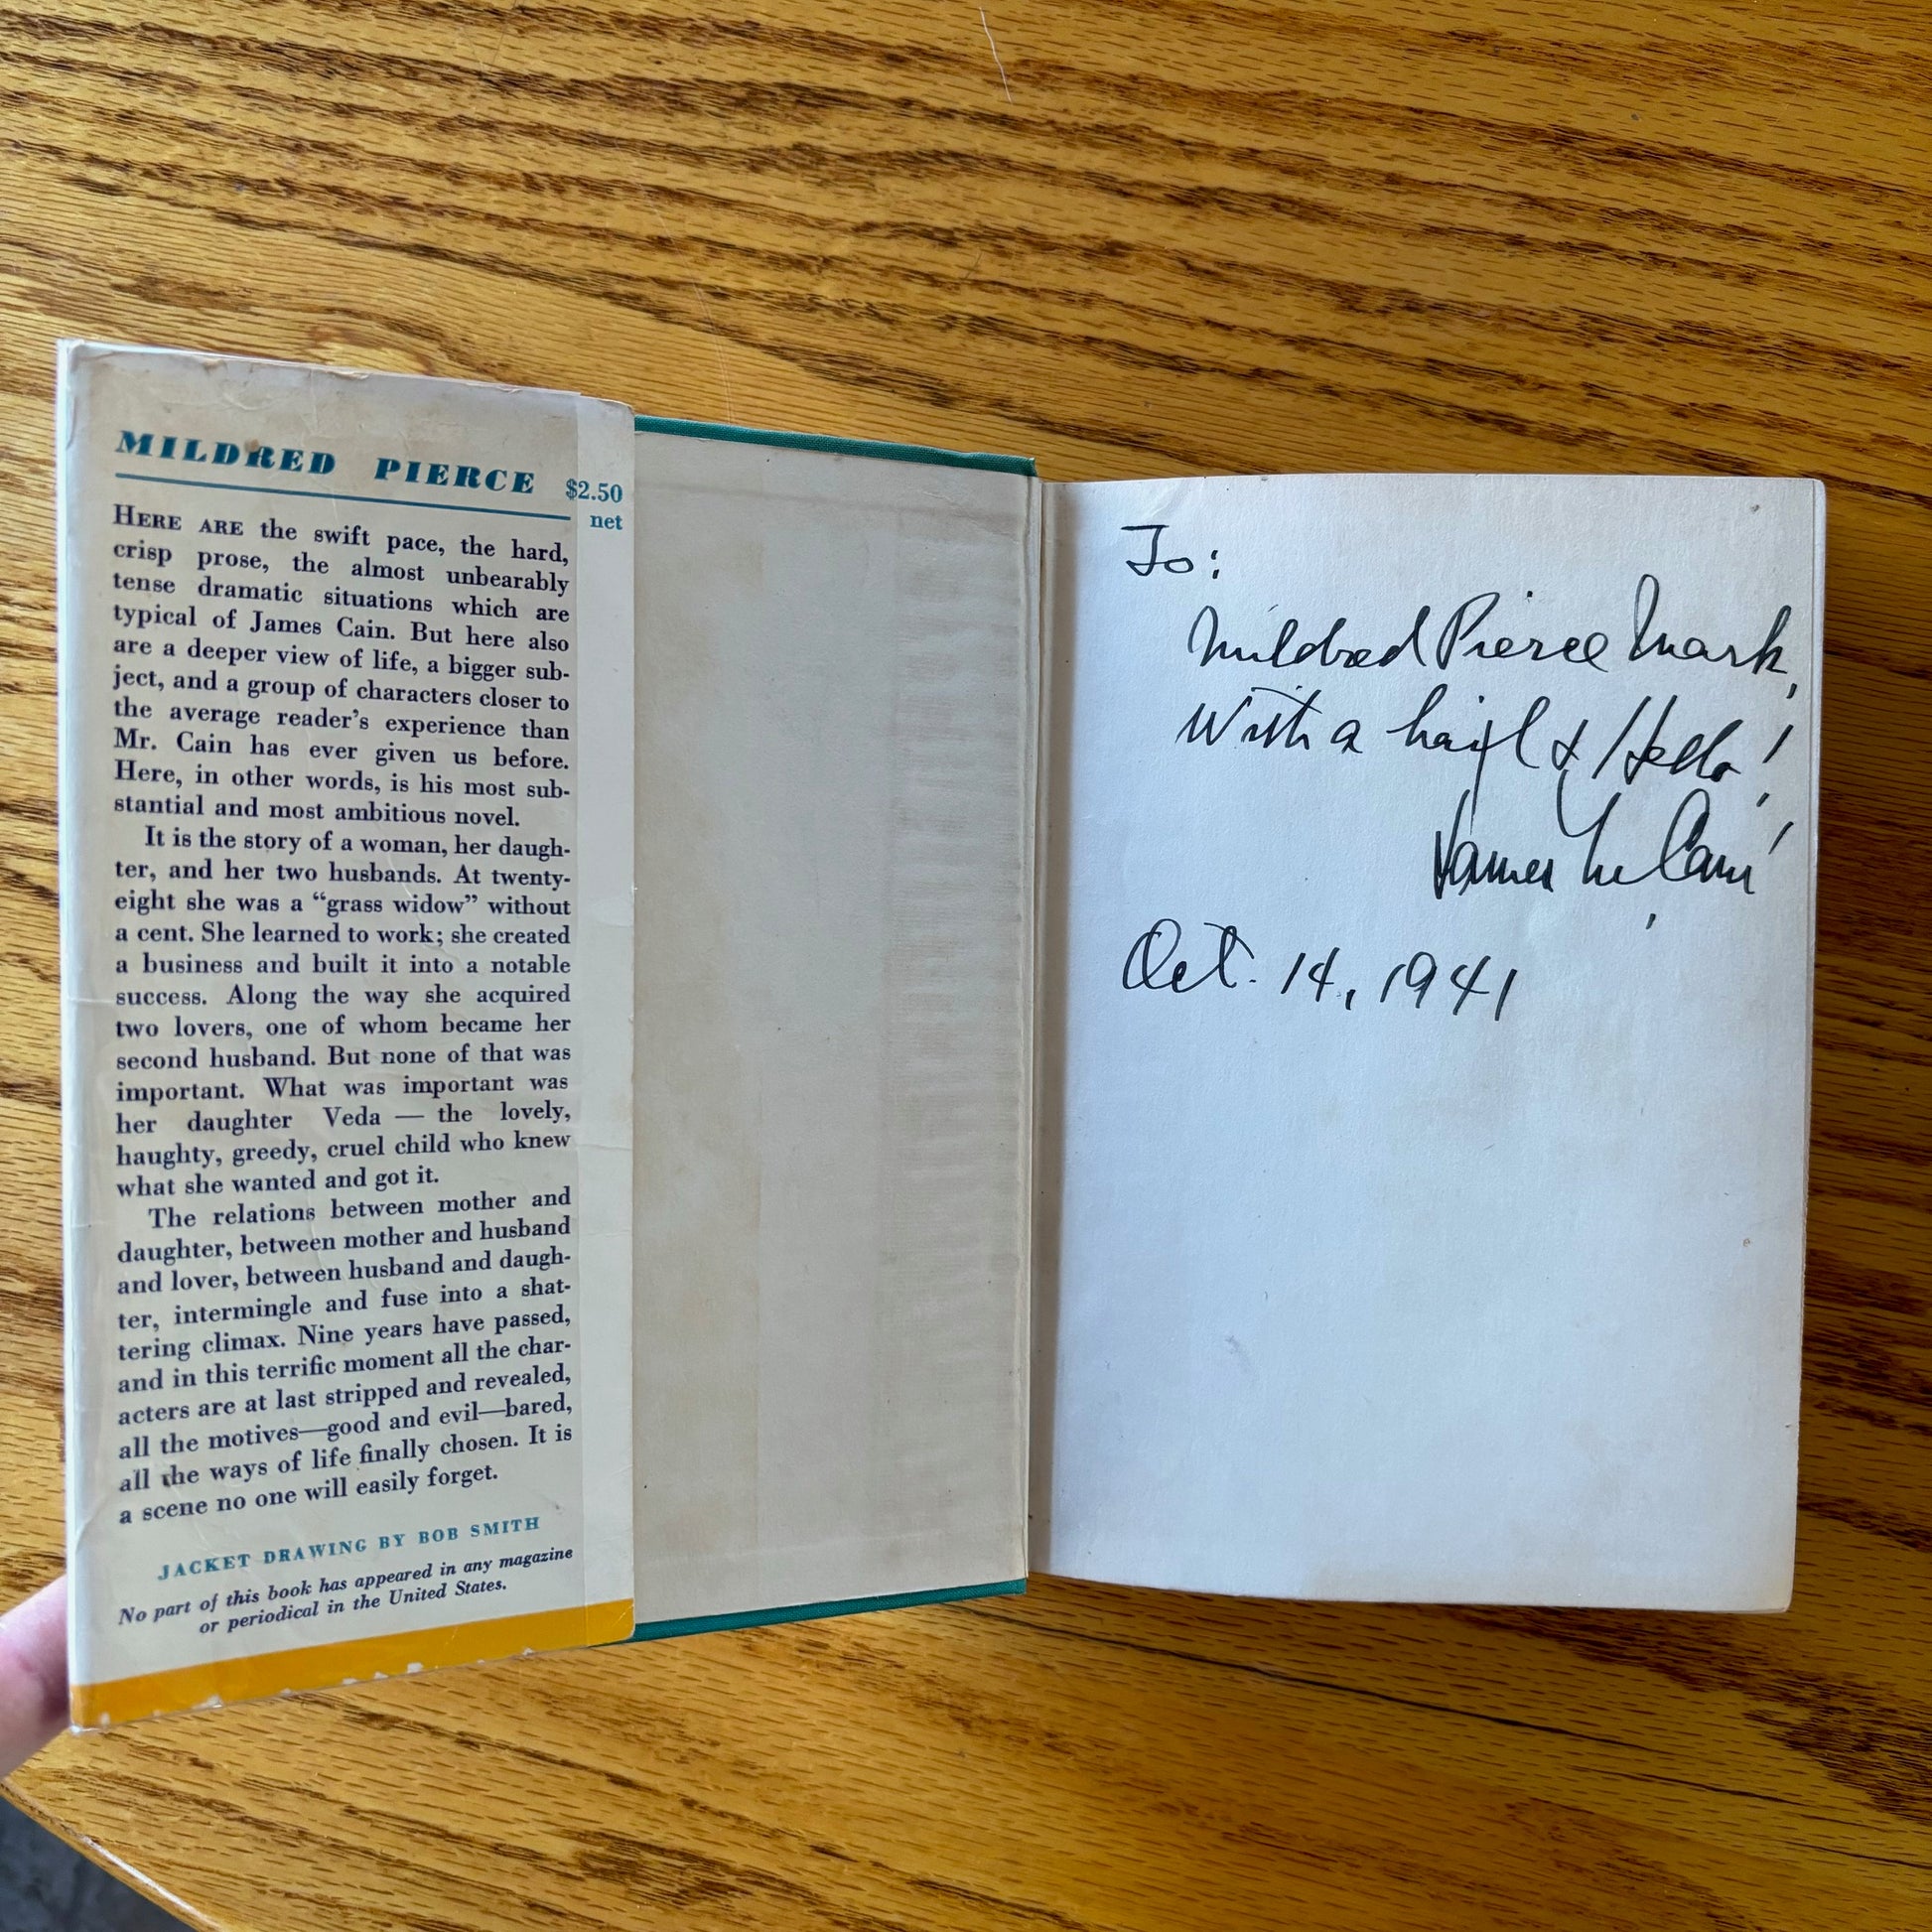 MILDRED PIERCE
$2.50
net
HERE ARE the swift pace, the hard,
crisp prose, the almost unbearably
tense dramatic situations which are
typical of James Cain. But here also
are a deeper view of life, a bigger sub-
ject, and a group of characters closer to
the average reader's experience than
Mr. Cain has ever given us before.
Here, in other words, is his most sub-
stantial and most ambitious novel.
It is the story of a woman, her daugh-
ter, and her two husbands. At twenty-
eight she was a “grass widow” without
a cent. She learned to work; she created
a business and built it into a notable
success. Along the way she acquired
two lovers, one of whom became her
second husband. But none of that was
important. What was important was
her daughter Veda — the lovely,
haughty, greedy, cruel child who knew
what she wanted and got it.
The relations between mother and
daughter, between mother and husband
and lover, between husband and daugh-
ter, intermingle and fuse into a shat-
tering climax. Nine years have passed,
and in this terrific moment all the char-
acters are at last stripped and revealed,
all the motives—good and evil—bared,
all the ways of life finally chosen. It is
a scene no one will easily forget.
JACKET DRAWING BY BOB SMITH
No part of this book has appeared in any magazine
or periodical in the United States.
To:
Mildred Pierce Mark,
With a hail & Hello!
James M. Cain
Oct. 14, 1941